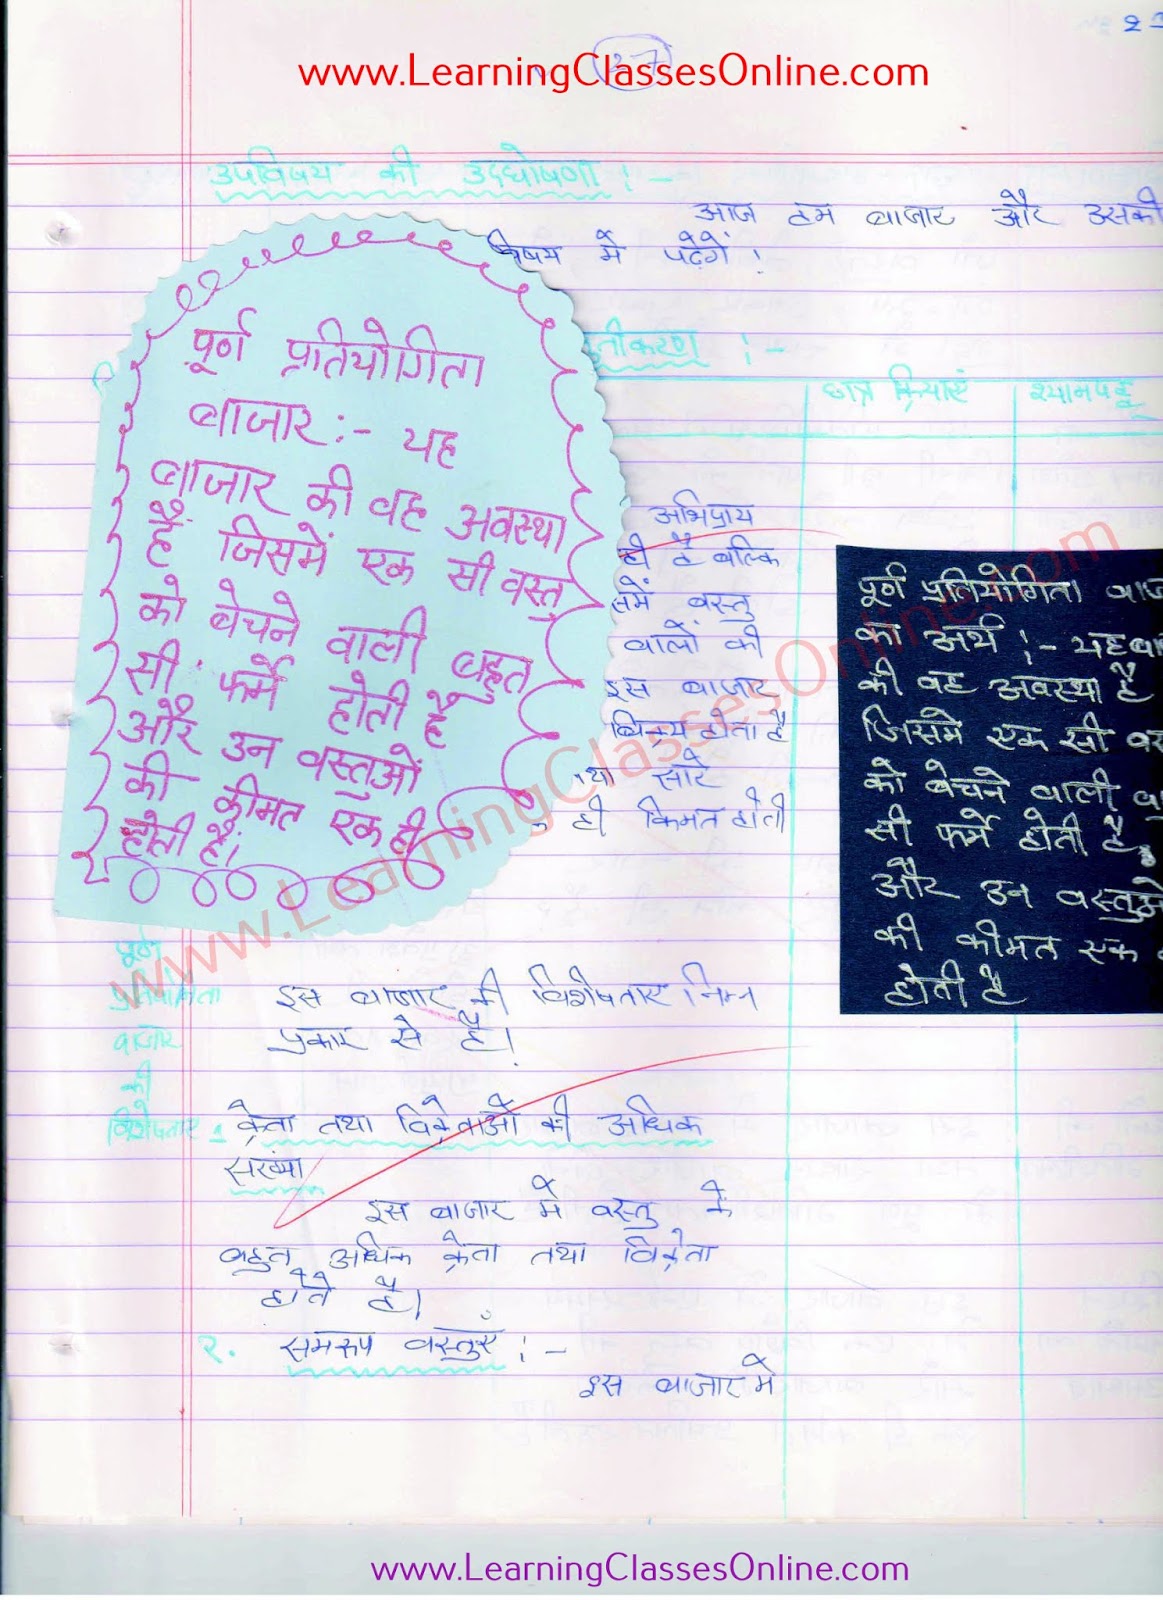 www.LearningClassesOnline.com
उपविषय की उदघोषणा :-
आज हम बाजार और उसकी
विषय में पढ़ेगें !
तीकरण :-
छात्र क्रियाएं
श्यामपट्ट
पूर्ण प्रतियोगिता
बाजार:- यह
बाजार की वह अवस्था
हैं जिसमें एक सी वस्तु
को बेचने वाली बहुत
सी फर्मे होती है
और उन वस्तुओं
की कीमत एक ही
होती है।
अभिप्राय
ही है बल्कि
समें वस्तु
वालों की
इस बाजार
विक्रय होता है
था सारे
ही किमत होती
पूर्ण प्रतियोगिता बाज
का अर्थ :- यह बा
की वह अवस्था है
जिसमे एक सी वस
को बेचने वाली ब
सी फर्मे होती है,
और उन वस्तुओ
की कीमत एक
होती है
www.LearningClassesOnline.com
पूर्ण
प्रतियोगिता
बाजार
की
विशेषताएं
इस बाजार की विशेषताएं निम्न
प्रकार से है।
1. क्रेता तथा विक्रेताओं की अधिक
संख्या
इस बाजार में वस्तु के
बहुत अधिक क्रेता तथा विक्रेता
होते है।
2. समरूप वस्तुएं :-
इस बाजार में
www.LearningClassesOnline.com